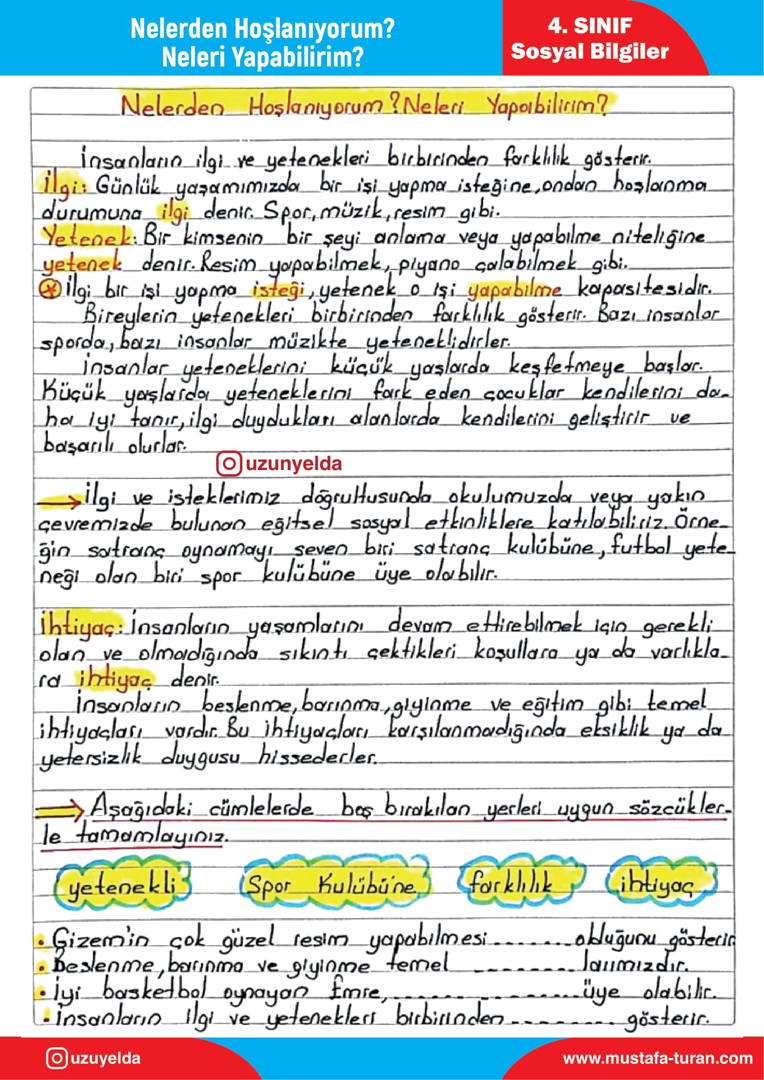 Nelerden Hoşlanıyorum?
Neleri Yapabilirim?
4. SINIF
Sosyal Bilgiler
Nelerden Hoşlanıyorum? Neleri Yapabilirim?
İnsanların ilgi ve yetenekleri birbirinden farklılık gösterir.
İlgi: Günlük yaşamımızda bir işi yapma isteğine, ondan hoşlanma
durumuna ilgi denir. Spor, müzik, resim gibi.
Yetenek: Bir kimsenin bir şeyi anlama veya yapabilme niteliğine
yetenek denir. Resim yapabilmek, piyano çalabilmek gibi.
İlgi bir işi yapma isteği, yetenek o işi yapabilme kapasitesidir.
Bireylerin yetenekleri birbirinden farklılık gösterir. Bazı insanlar
sporda, bazı insanlar müzikte yeteneklidirler.
İnsanlar yeteneklerini küçük yaşlarda keşfetmeye başlar.
Küçük yaşlarda yeteneklerini fark eden çocuklar kendilerini da-
ha iyi tanır, ilgi duydukları alanlarda kendilerini geliştirir ve
başarılı olurlar.
uzunyelda
İlgi ve isteklerimiz doğrultusunda okulumuzda veya yakın
çevremizde bulunan eğitsel sosyal etkinliklere katılabiliriz. Örne-
ğin satranç oynamayı seven biri satranç kulübüne, futbol yete-
neği olan biri spor kulübüne üye olabilir.
İhtiyaç: İnsanların yaşamlarını devam ettirebilmek için gerekli
olan ve olmadığında sıkıntı çektikleri koşullara ya da varlıkla-
ra ihtiyaç denir.
İnsanların beslenme, barınma, giyinme ve eğitim gibi temel
ihtiyaçları vardır. Bu ihtiyaçları karşılanmadığında eksiklik ya da
yetersizlik duygusu hissederler.
Aşağıdaki cümlelerde boş bırakılan yerleri uygun sözcükler-
le tamamlayınız.
yetenekli Spor Kulübü'ne farklılık ihtiyaç
• Gizem'in çok güzel resim yapabilmesi........olduğunu gösterir
• Beslenme, barınma ve giyinme temel ..........larımızdır.
• İyi basketbol oynayan Emre,..................üye olabilir.
• İnsanların ilgi ve yetenekleri birbirinden.......... gösterir.
uzuyelda
www.mustafa-turan.com